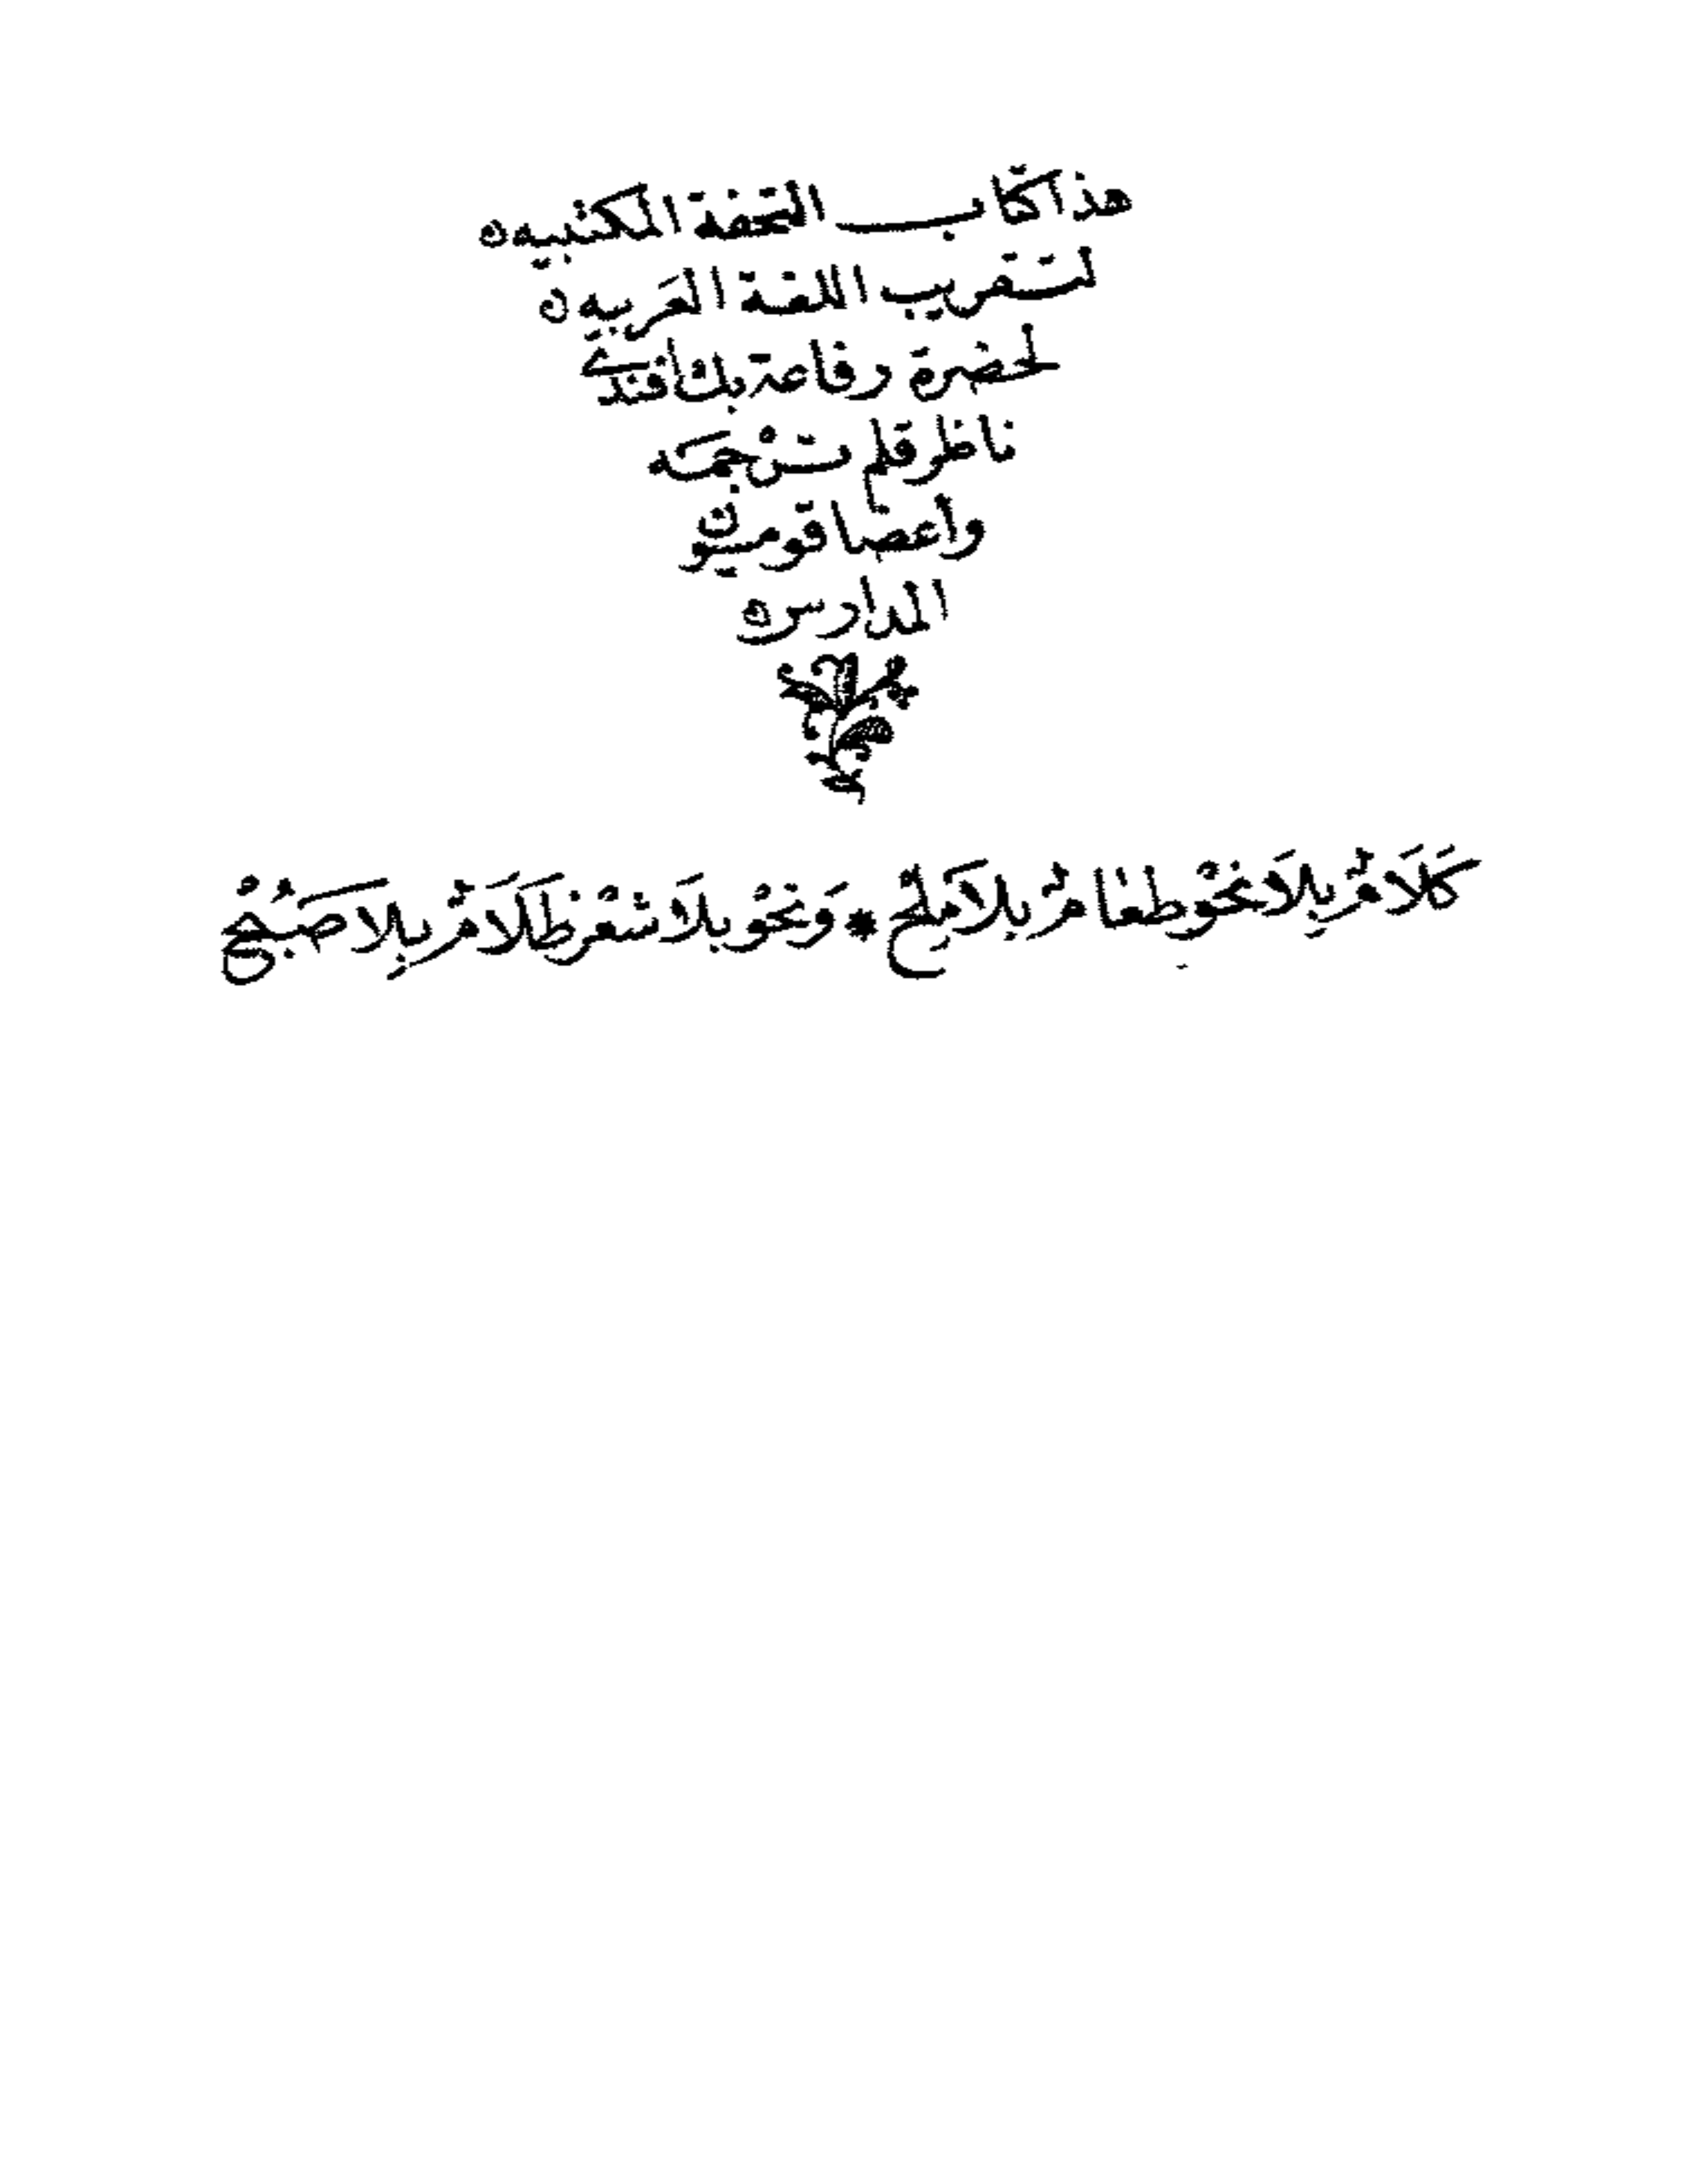 هذا كتاب التحفة المكتبيه
لتقريب اللغة العَربيه
لحضرة رفاعة بك أفندي
ناظر قلم ترْجمَه
وأعضا قومسيون
المدارس
كَلَامٌ بِلَا نَحْوٍ طعَامٌ بِلَا مِلْحٍ * وَنَحْو بلَا شعْر ظَلَامٌ بِلَا صُبْحُ